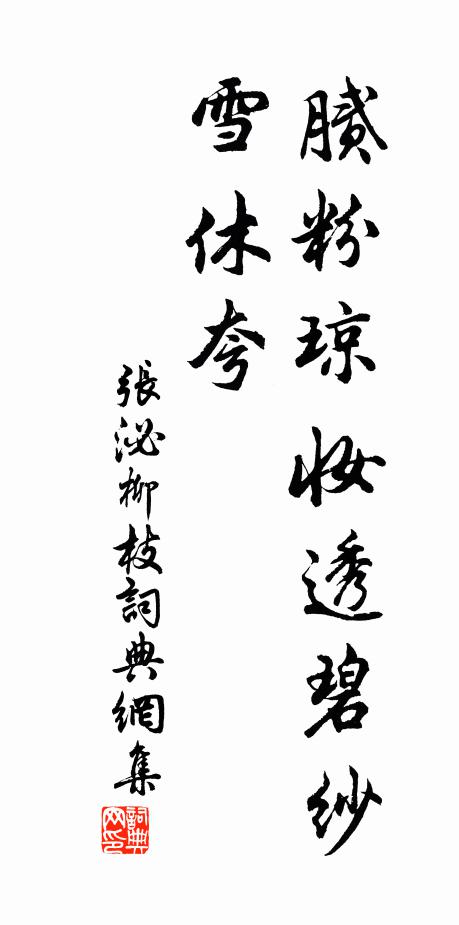 膩粉琼妆透碧纱
雪休夸
張泌柳枝詞典網集
詞典网印